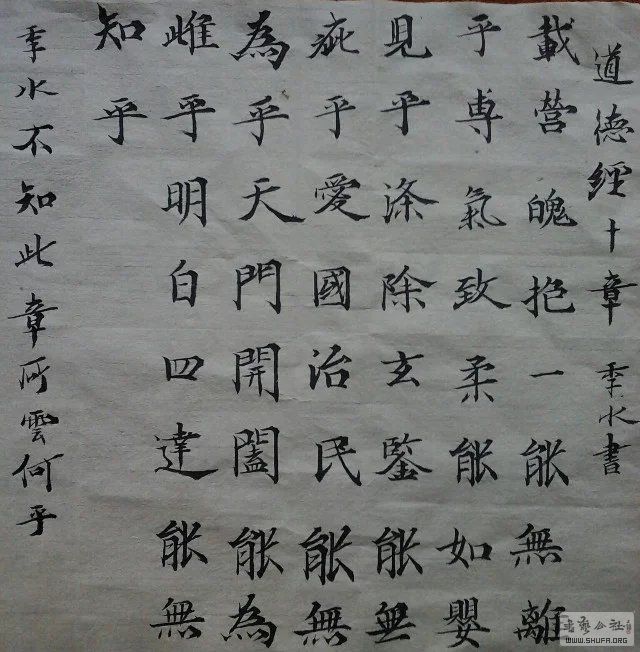 道德經十章 季水書
載營魄抱一能無離
乎專氣致柔能如嬰
見乎涤除玄鍳能無
疵乎愛國治民能無
為乎天門開闔能為
雌乎明白四達能無
知乎
季水不知此章所雲何乎
WWW.SHUFA.ORG